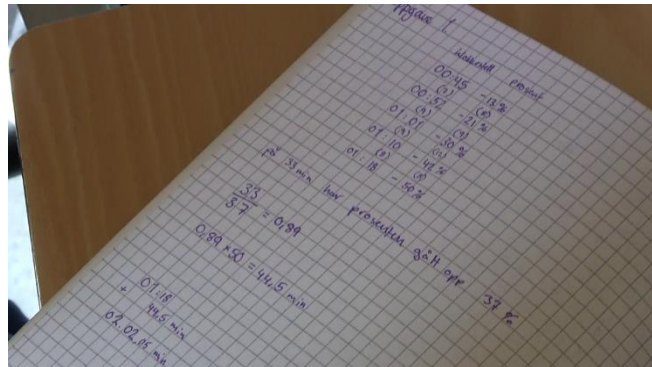 ppgave 1.
klokkeslett prosent
00:45 - 13 %
(7) (8)
00:52 - 21 %
(9) (9)
01:01 - 30 %
(9)
01:10 - 42 %
(8) (8)
01:18 - 50 %
på 33 min har prosenten gått opp 37 %
33
37 = 0,89
0,89 × 50 = 44,5 min
01:18
+ 44,5 min
02.02.05 min